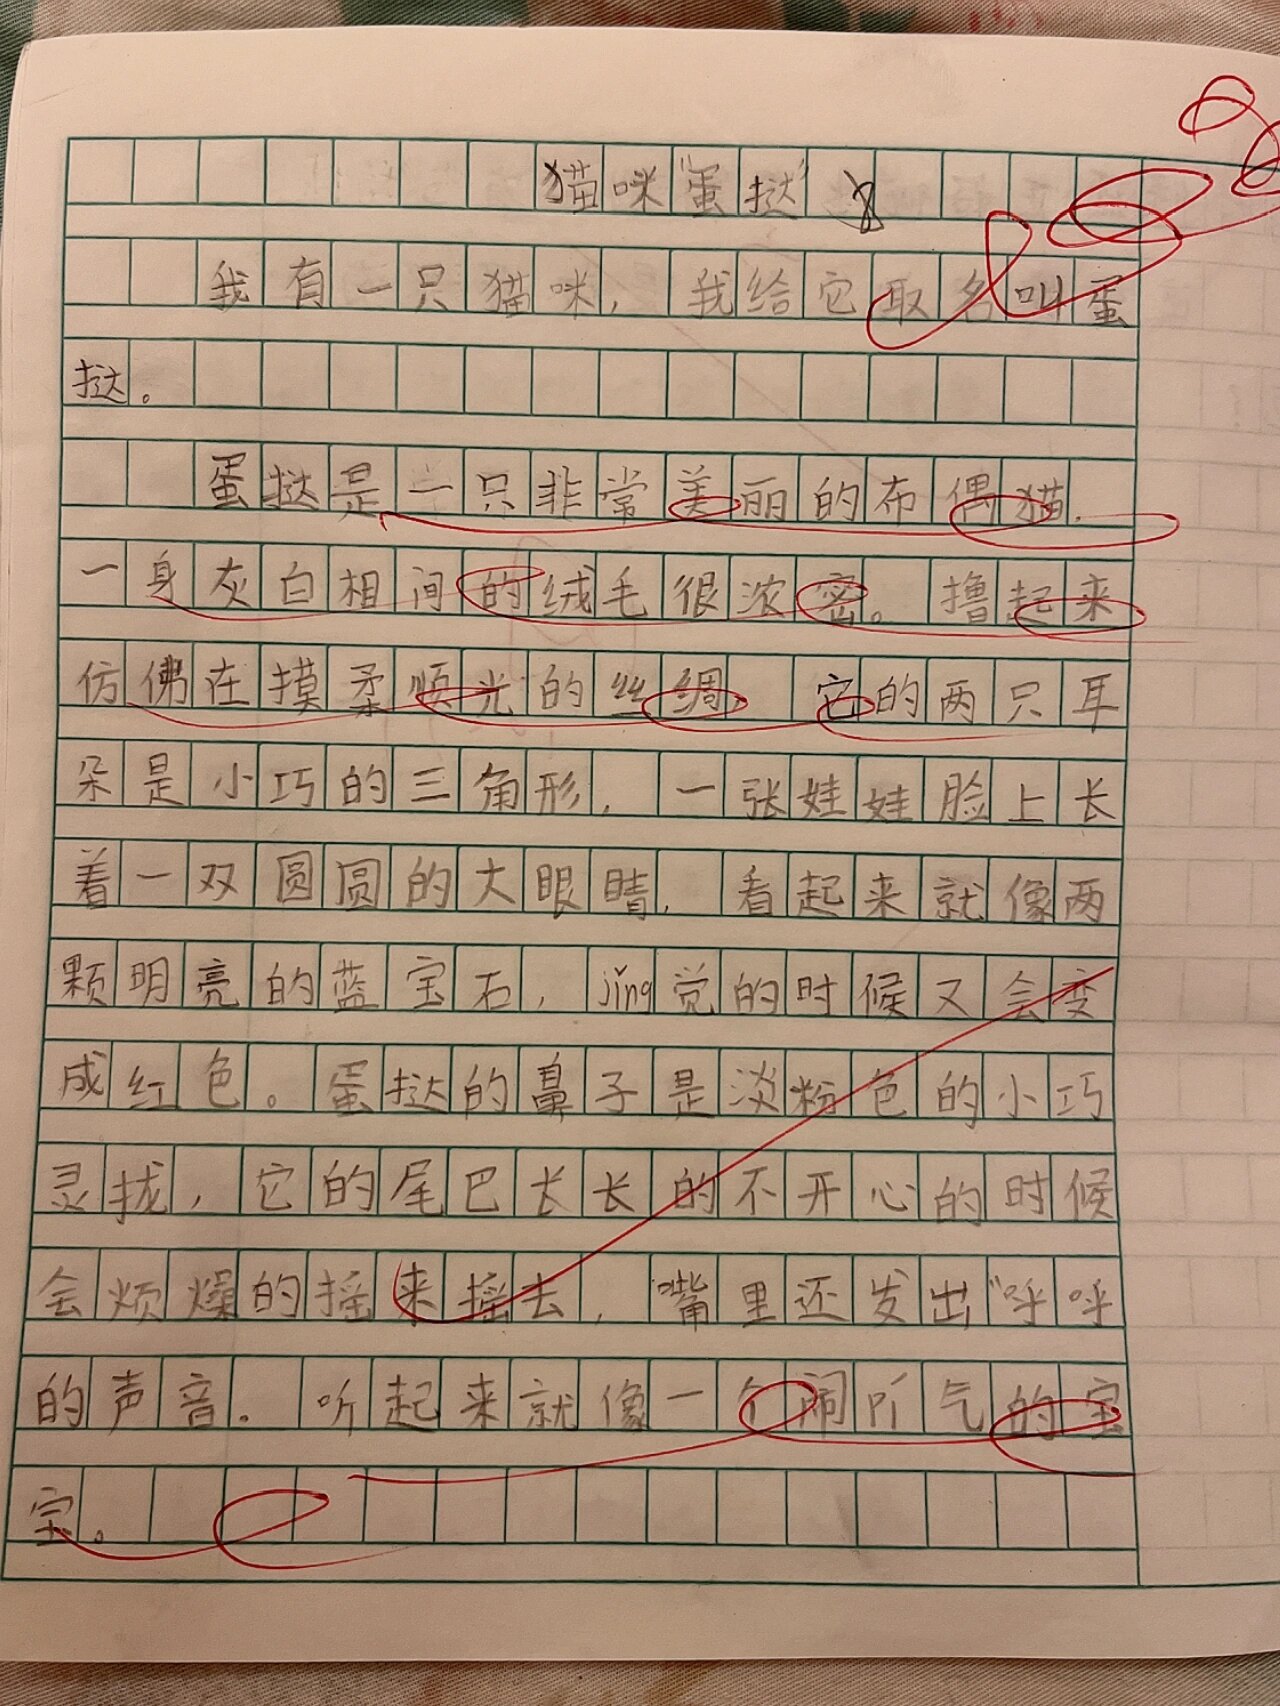 猫咪"蛋挞"
我有一只猫咪，我给它取名叫蛋
挞。
蛋挞是一只非常美丽的布偶猫，
一身灰白相间的绒毛很浓密。撸起来
仿佛在摸柔顺光的丝绸，它的两只耳
朵是小巧的三角形，一张娃娃脸上长
着一双圆圆的大眼睛，看起来就像两
颗明亮的蓝宝石，jǐng觉的时候又会变
成红色。蛋挞的鼻子是淡粉色的小巧
灵拢，它的尾巴长长的不开心的时候
会烦燥的摇来摇去，嘴里还发出"呼呼
的声音。听起来就像一个闹气的宝
宝。